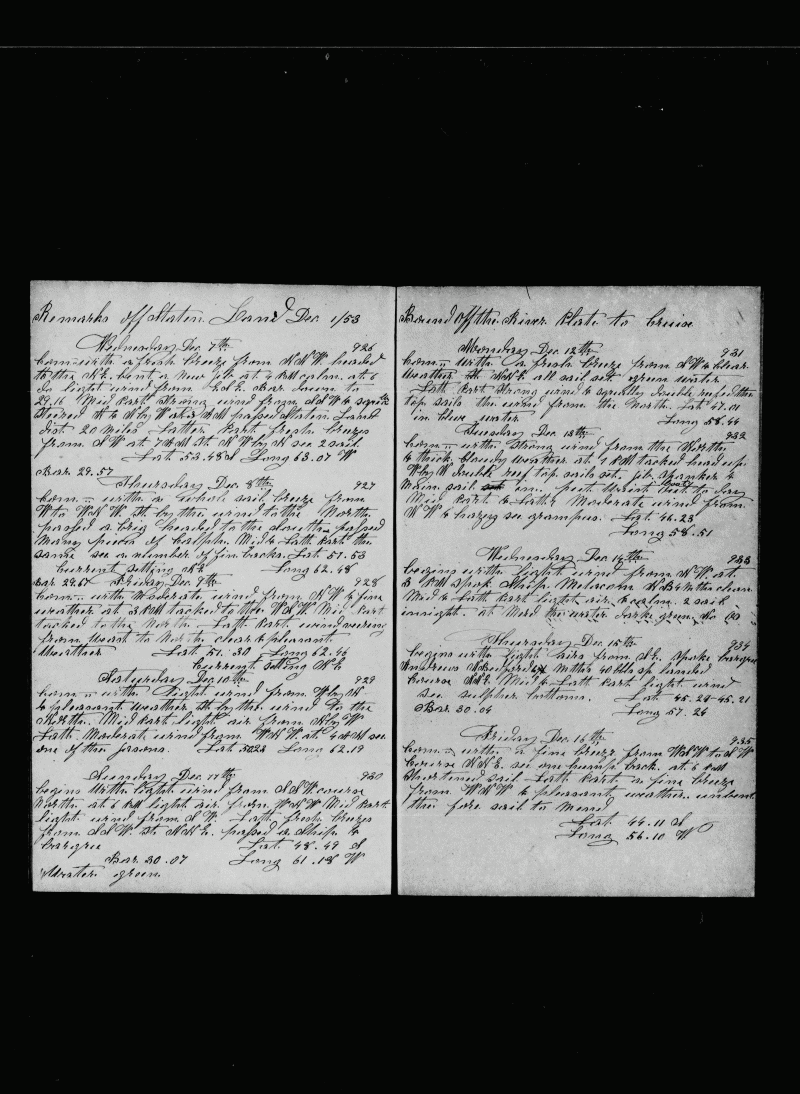 Remarks off Staten Land Dec 1/53
Wednesday Dec 7th 926
com= with a fresh breeze from N N W headed
to the N E. bent a new jib at 4 PM calm. at 6
do light wind from E S E Bar down to
29.16 Mid Part Strong wind from S S W &
Steered N & N by W at 2 AM passed Staten Land
dist 20 miles Latter Part fresh breezes
from S W at 7 AM St N W by N see 2 sail
Lat 53.48 S Long 63.07 W
Bar 29.57
Thursday Dec. 8th 927
com= with a whole sail breeze from
W to W N W. St by the wind to the North
passed a brig headed to the South passed
many pieces of kelp. Mid & Latt Part the
same see a number of fin backs. Lat 51.53
Current setting N E Long 62.48
Bar 29.67 Friday Dec. 9th 928
com= with Moderate wind from N W & fine
weather at 3 PM tacked to the W S W Mid Part
tacked to the North Latt Part wind veering
from West to North clear & pleasant
Weather Lat 51.30 Long 62.46
Current setting N E
Saturday Dec. 10th 929
com= with light wind from W by N
& pleasant weather St by the wind to the
North. Mid Part light air from N by W
Latt Moderate wind from W N W at 4 AM see
one of the Lat Long 62.19
Sunday Dec. 11th 930
begins with light wind from S S W course
North at 6 PM light air from W N W Mid Part
light wind from S W. Latt fresh breezes
from S S W. St N N E. passed a Ship &
bargue Lat. 48.49 S
Bar 30.07 Long 61.18 W
Water green
Bound off the River Plate to Cruise
Monday Dec 12th 931
com= with a fresh breeze from S W & clear
Weather St N N E all sail set green water
Latt Part Strong wind & squally double reefed the
top sails the wind from the North Lat 47.01
in blue water Long 58.44
Tuesday Dec. 13th 932
com= with Strong wind from the North
& thick cloudy weather at 1 PM tacked head up
W by N double reef top sails set. jib Spanker &
Main sail in.
Mid Part & Latter Moderate wind from
N W & hazy see grampus. Lat 46.23
Long 58.51
Wednesday Dec 14th 933
begins with light wind from N W at
3 PM spok Ship
Mid & Latt Part light air & calm. 2 sail
insight. at Merd the water darke green
Thursday Dec. 15th 934
begins with light airs from S E. spoke bargue
Andrews N Bedford 40 bbls sp landed
Course N N E. Mid & Latt Part light wind
see sulpher bottoms. Lat 45.24-45.21
Bar. 30.04 Long 57.24
Friday Dec. 16th 935
com= with a fine breeze from W N W to S W
Course N N E. see one hump back. at 6 PM
Shortened sail Latt Part a fine breeze
from W N W & pleasant weather unbent
the fore sail to Mend
Lat 44.11 S
Long 56.10 W